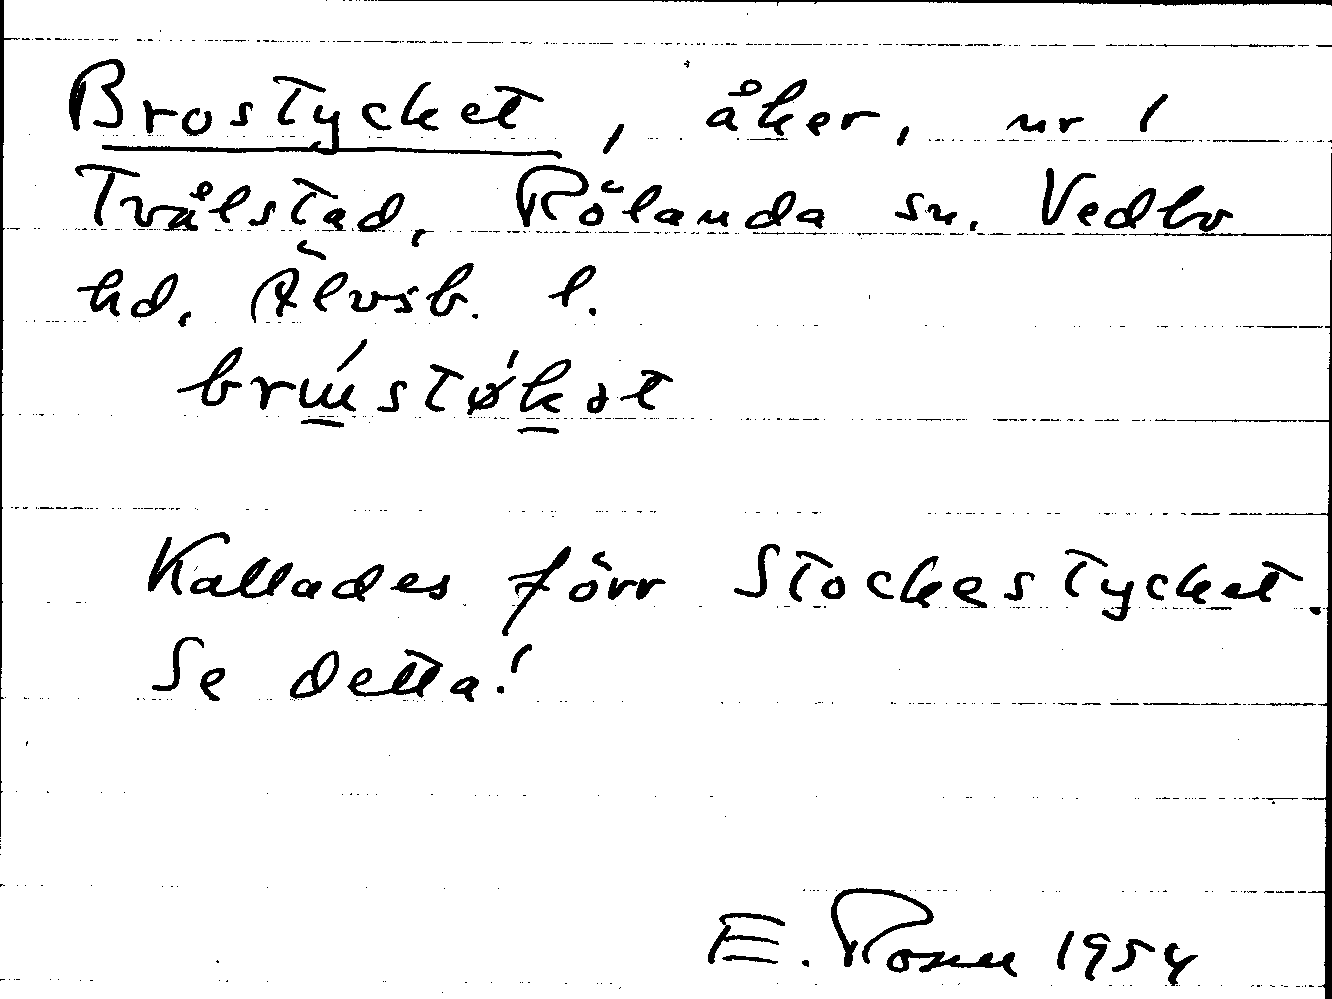 Brostycket, åker, nr 1
Tvålstad, Rölanda sn. Vedbo
hd, Älvsb. l.
brústø̀kət
Kallades förr Stockestycket.
Se detta!
E. Rosell 1954